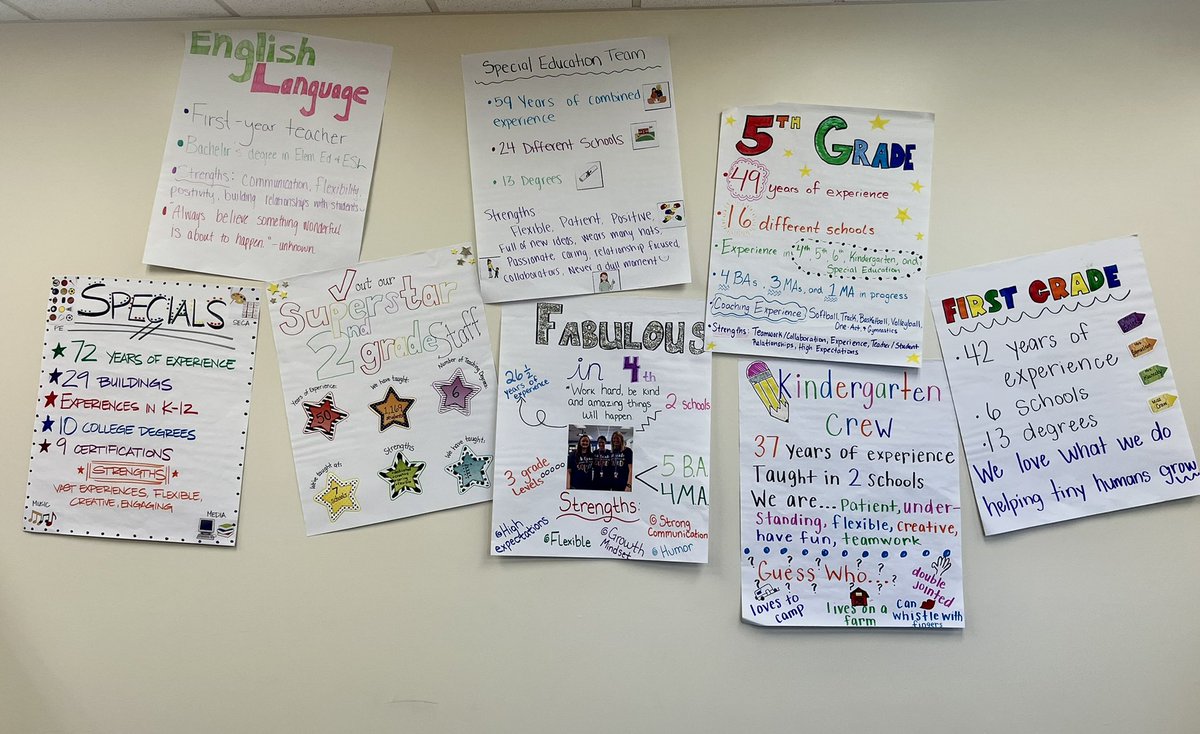 English
Language
• First-year teacher
• Bachelor's degree in Elem. Ed + ESL
• Strengths: Communication, Flexibility,
positivity, building relationships with students
• "Always believe something wonderful
is about to happen." -unknown
Special Education Team
• 59 Years of combined
experience
• 24 Different Schools
• 13 Degrees
Strengths
Flexible, Patient, Positive,
Full of new ideas, wears many hats,
Passionate, caring, relationship focused,
Collaborators, Never a dull moment
5TH GRADE
• 49 years of experience
• 16 different schools
• Experience in 4th, 5th, 6th, Kindergarten, and
Special Education
• 4 BAs, 3 MAs, and 1 MA in progress
• Coaching Experience: Softball, Track, Basketball, Volleyball,
One-Act, & Gymnastics
• Strengths: Teamwork/Collaboration, Experience, Teacher/Student
Relationships, High Expectations
SPECIALS
PE
SECA
72 YEARS OF EXPERIENCE
29 BUILDINGS
EXPERIENCES IN K-12
10 COLLEGE DEGREES
9 CERTIFICATIONS
STRENGTHS
VAST EXPERIENCES, FLEXIBLE,
CREATIVE, ENGAGING
MUSIC
MEDIA
out our
Superstar
2nd
grade Staff
Years of Experience:
50
We have taught:
1,169
Number of Teaching Degrees
6
We've taught at:
7
schools
Strengths
We have taught:
FABULOUS
in 4th
26 1/2
years of experience
"Work hard, be kind
and amazing things
will happen."
2 schools
3 grade
levels
5 BA
4 MA
Strengths:
High
expectations
Flexible
Growth
Mindset
Strong
Communication
Humor
Kindergarten
Crew
37 years of experience
Taught in 2 schools
We are... Patient, under-
standing, flexible, creative,
have fun, teamwork
Guess Who...?
loves to
camp
lives on a
farm
double
jointed
can
whistle with
fingers
FIRST GRADE
• 42 years of
experience
• 6 schools
• 13 degrees
We love what we do
helping tiny humans grow